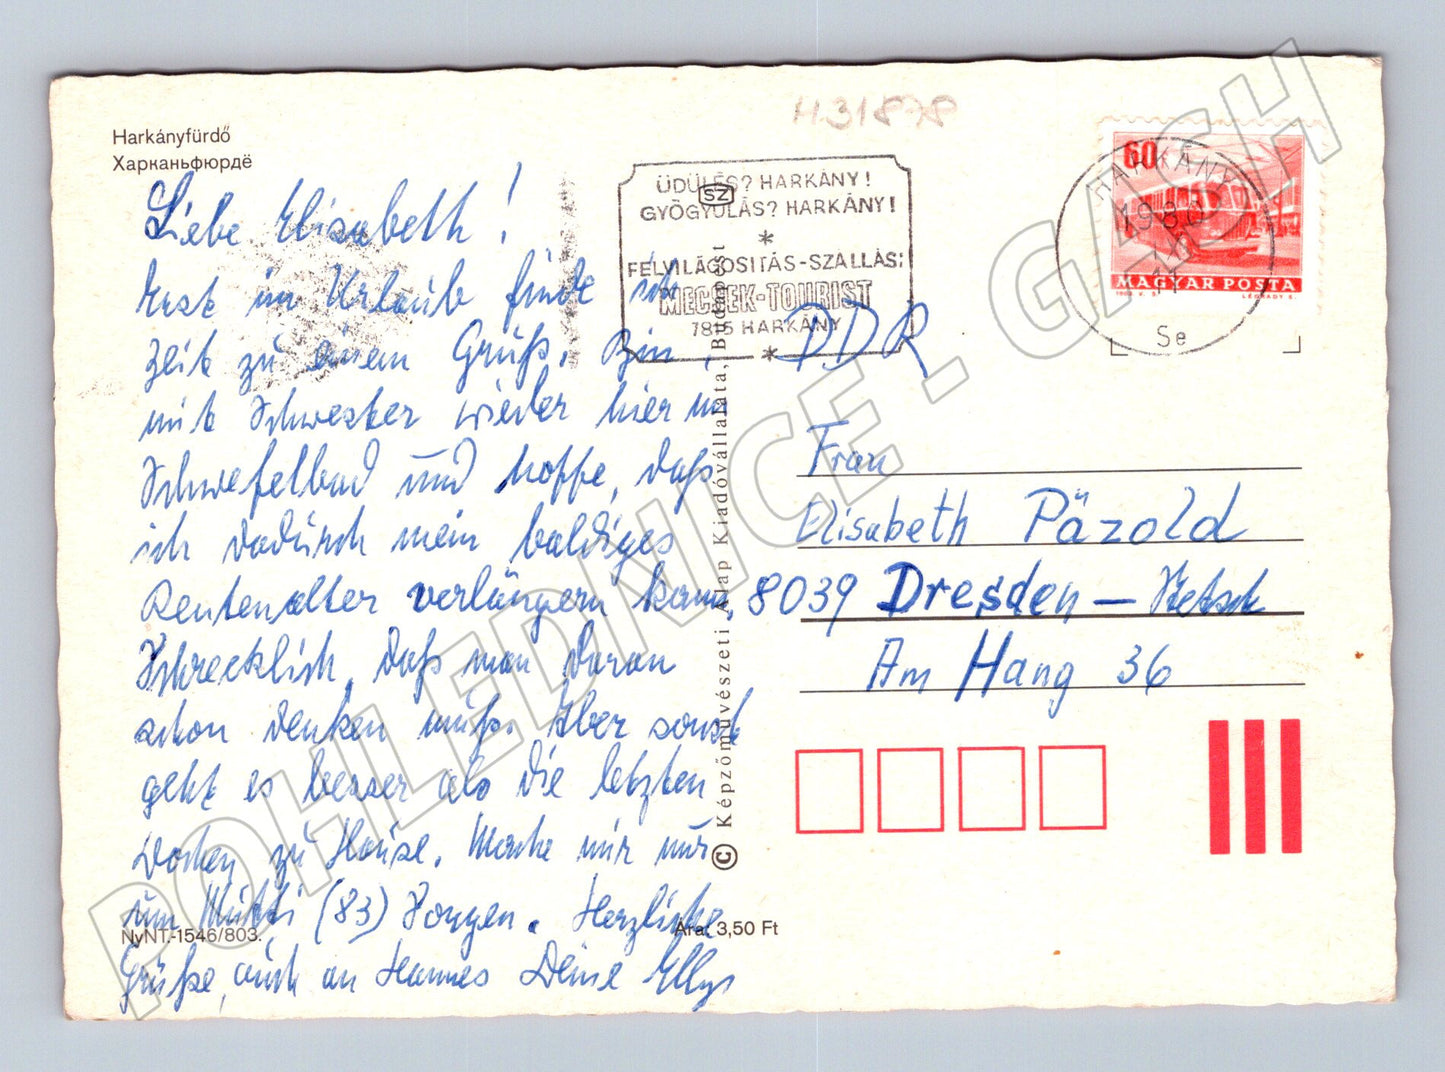 Harkányfürdő
Харканьфюрдё
H31878
ÜDÜLÉS? HARKÁNY!
SZ
GYÓGYULÁS? HARKÁNY!
*
FELVILÁGOSITÁS-SZÁLLÁS:
MECSEK-TOURIST
7815 HARKÁNY
*
60
HARKÁNY
1980
Se
MAGYAR POSTA
LÉGRÁDY S.
Liebe Elisabeth!
Erst im Urlaub finde ich
Zeit zu einem Gruß. Bin
mit Schwester wieder hier im
Schwefelbad und hoffe, daß
ich dadurch mein baldiges
Rentenalter verlängern kann.
Schrecklich, daß man daran
schon denken muß. Aber sonst
geht es besser als die letzten
Wochen zu Hause. Mache mir nur
um Mutti (83) Sorgen. Herzliche
Grüße, auch an Hannes Deine Elly
DDR
Frau
Elisabeth Päzold
8039 Dresden –
Am Hang 36
© Képzőművészeti Alap Kiadóvállalata, Budapest
NyNT.-1546/803.
Ára: 3,50 Ft
POHLEDNICE.GASH